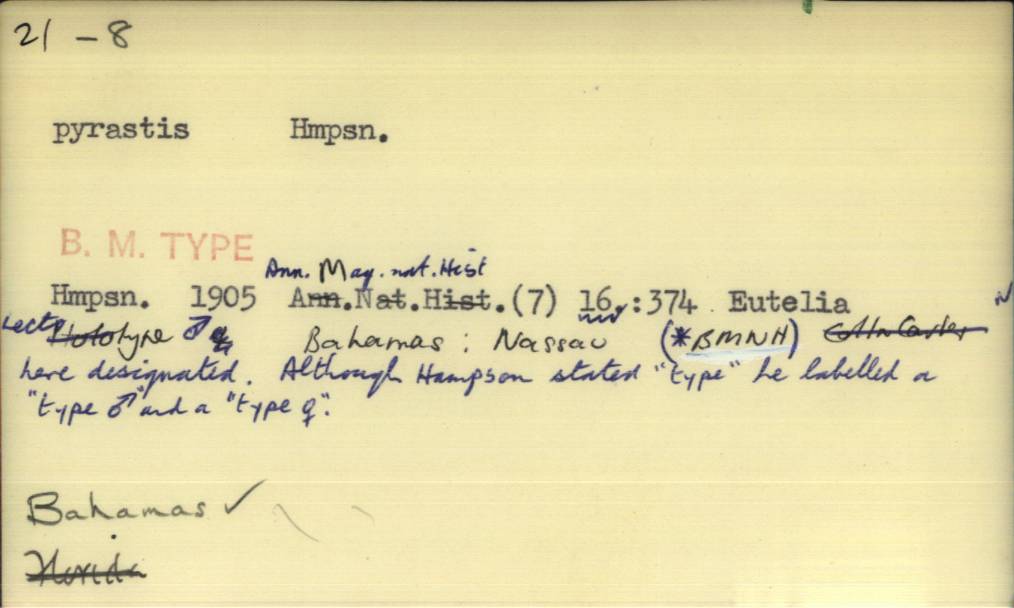 21 – 8
pyrastis Hmpsn.
B. M. TYPE
Ann. Mag. nat. Hist
Hmpsn. 1905 Ann.Nat.Hist.(7) 16,:374 Eutelia
Lecto Holotype ♂ ♀ Bahamas : Nassau (*BMNH)
here designated. Although Hampson stated "type" he labelled a
"type ♂" and a "type ♀".
Bahamas ✓
Florida